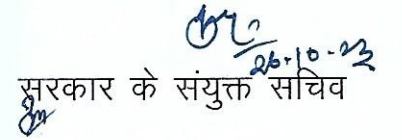 26.10.23
सरकार के संयुक्त सचिव